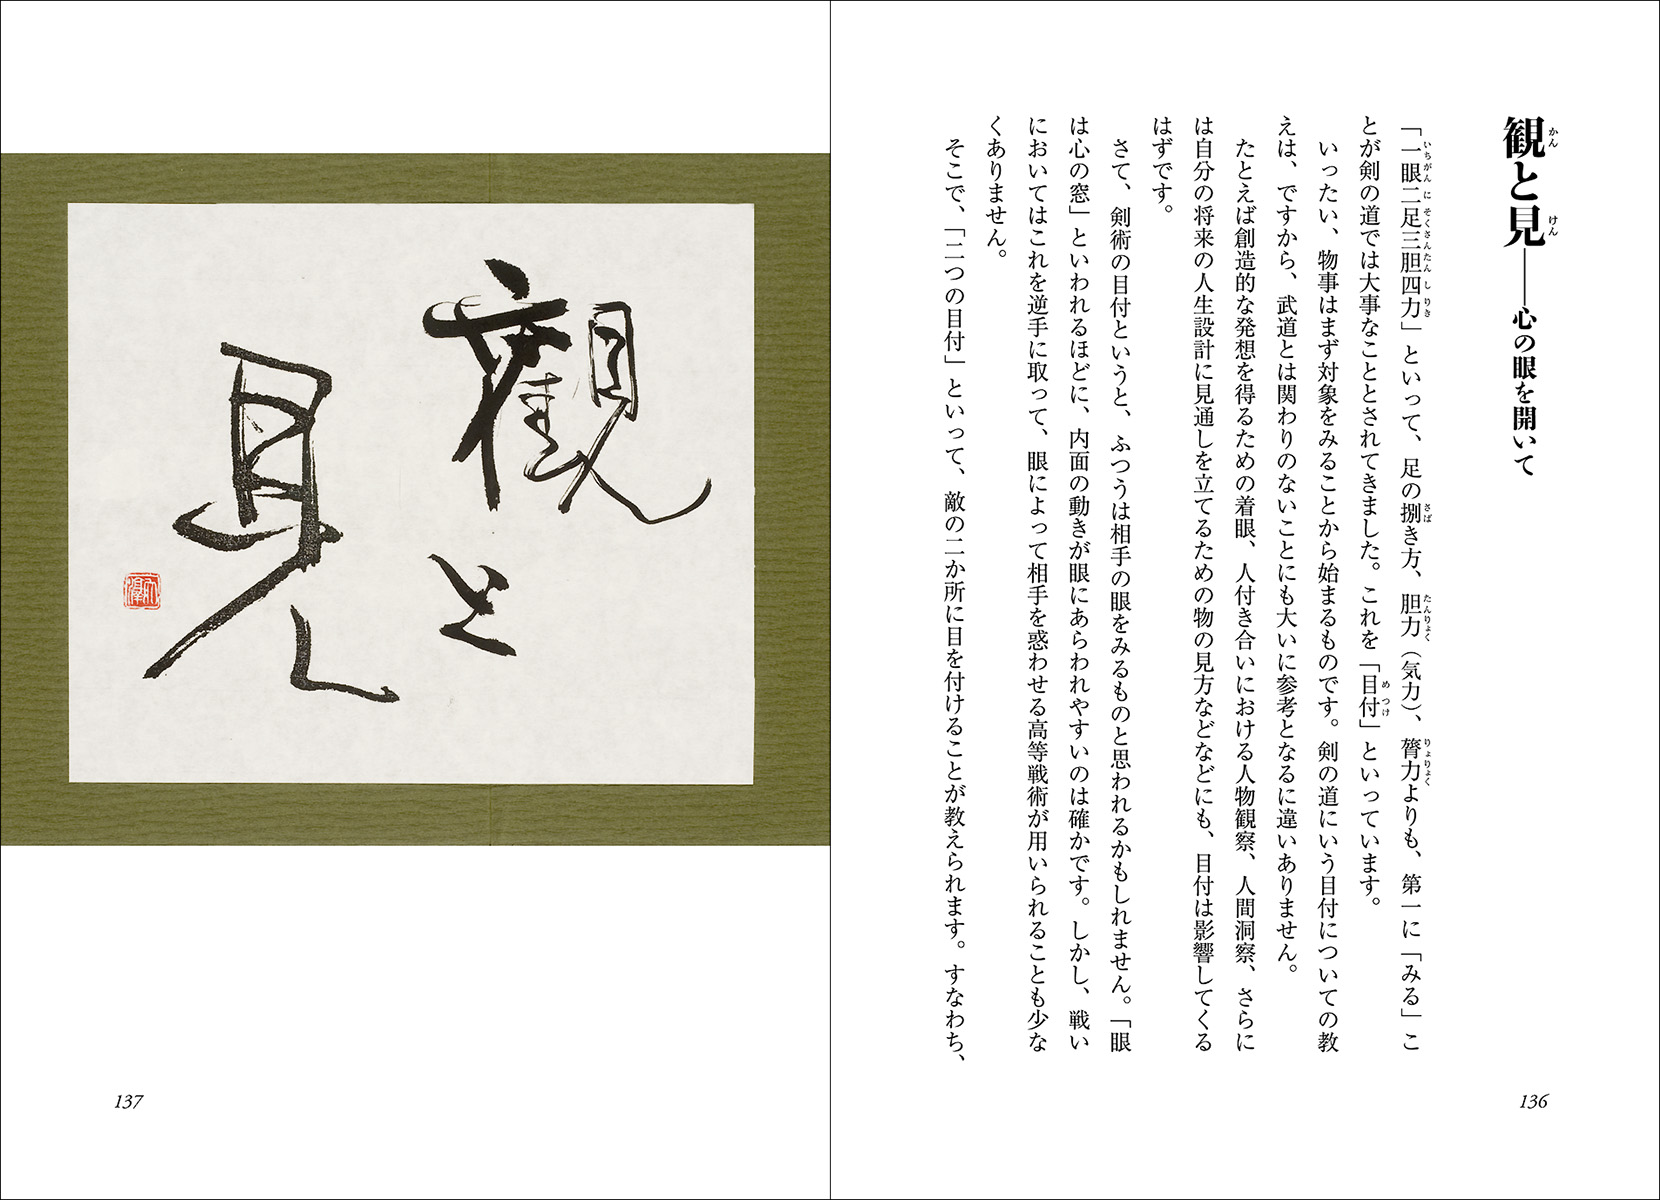 観と見――心の眼を開いて
「一眼二足三胆四力」といって、足の捌き方、胆力（気力）、膂力よりも、第一に「みる」こ
とが剣の道では大事なこととされてきました。これを「目付」といっています。
いったい、物事はまず対象をみることから始まるものです。剣の道にいう目付についての教
えは、ですから、武道とは関わりのないことにも大いに参考となるに違いありません。
たとえば創造的な発想を得るための着眼、人付き合いにおける人物観察、人間洞察、さらに
は自分の将来の人生設計に見通しを立てるための物の見方などなどにも、目付は影響してくる
はずです。
さて、剣術の目付というと、ふつうは相手の眼をみるものと思われるかもしれません。「眼
は心の窓」といわれるほどに、内面の動きが眼にあらわれやすいのは確かです。しかし、戦い
においてはこれを逆手に取って、眼によって相手を惑わせる高等戦術が用いられることも少な
くありません。
そこで、「二つの目付」といって、敵の二か所に目を付けることが教えられます。すなわち、
136
觀と
見
137